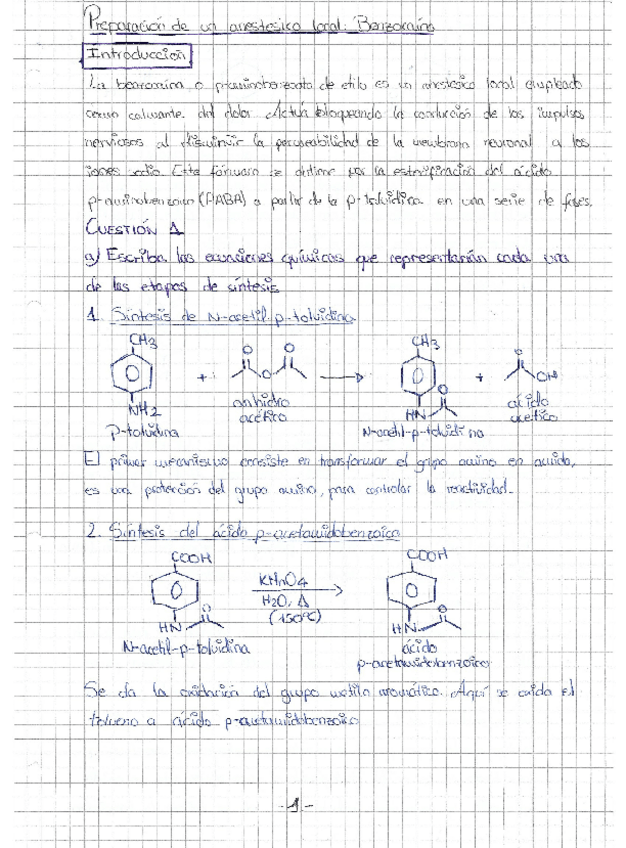 Preparación de un anestésico local: Benzocaína
Introducción
La benzocaína o p-aminobenzoato de etilo es un anestésico local empleado
como calmante del dolor. Actúa bloqueando la conducción de los impulsos
nerviosos al disminuir la permeabilidad de la membrana neuronal a los
iones sodio. Este fármaco se obtiene por la esterificación del ácido
p-aminobenzoico (PABA) a partir de la p-toluidina en una serie de fases.
CUESTIÓN 1
a) Escriba las ecuaciones químicas que representarían cada una
de las etapas de síntesis
1. Síntesis de N-acetil-p-toluidina
CH3
O O
O
+
NH2
p-toluidina
anhidro
acético
CH3
O
HN
N-acetil-p-toluidina
+
O
OH
ácido
acético
El primer mecanismo consiste en transformar el grupo amino en amida,
es una protección del grupo amino, para controlar la reactividad.
2. Síntesis del ácido p-acetamidobenzoico
COOH
HN
O
N-acetil-p-toluidina
KMnO4
H2O, Δ
(150ºC)
COOH
HN
O
ácido
p-acetamidobenzoico
Se da la oxidación del grupo metilo aromático. Aquí se oxida el
tolueno a ácido p-acetamidobenzoico
-1-